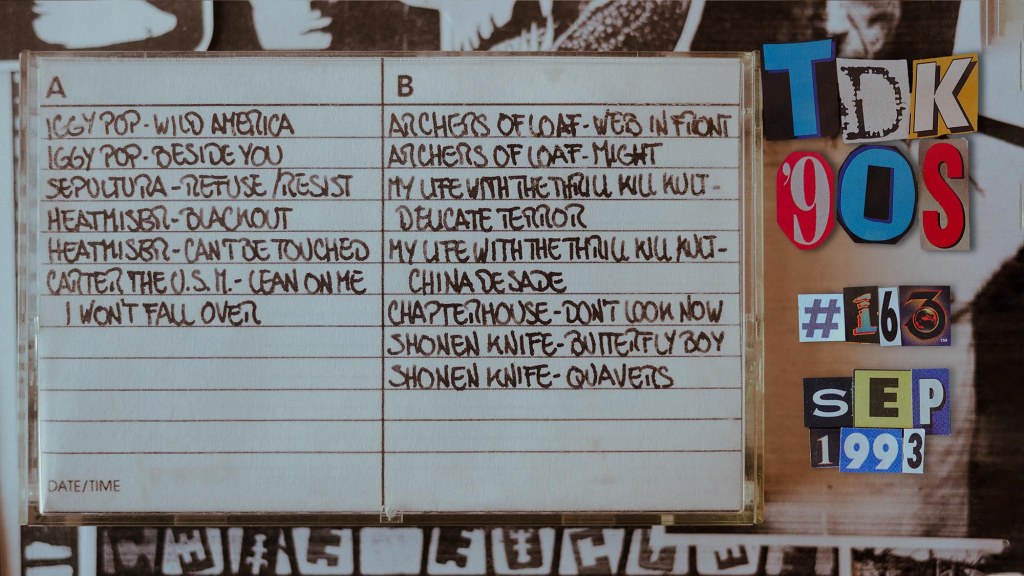 A
IGGY POP - WILD AMERICA
IGGY POP - BESIDE YOU
SEPULTURA - REFUSE / RESIST
HEATMISER - BLACKOUT
HEATMISER - CAN'T BE TOUCHED
CARTER THE U.S.M. - LEAN ON ME
I WON'T FALL OVER
DATE/TIME
B
ARCHERS OF LOAF - WEB IN FRONT
ARCHERS OF LOAF - MIGHT
MY LIFE WITH THE THRILL KILL KULT -
DELICATE TERROR
MY LIFE WITH THE THRILL KILL KULT -
CHINA DE SADE
CHAPTERHOUSE - DON'T LOOK NOW
SHONEN KNIFE - BUTTERFLY BOY
SHONEN KNIFE - QUAVERS
TDK
'90S
#163
SEP
1993